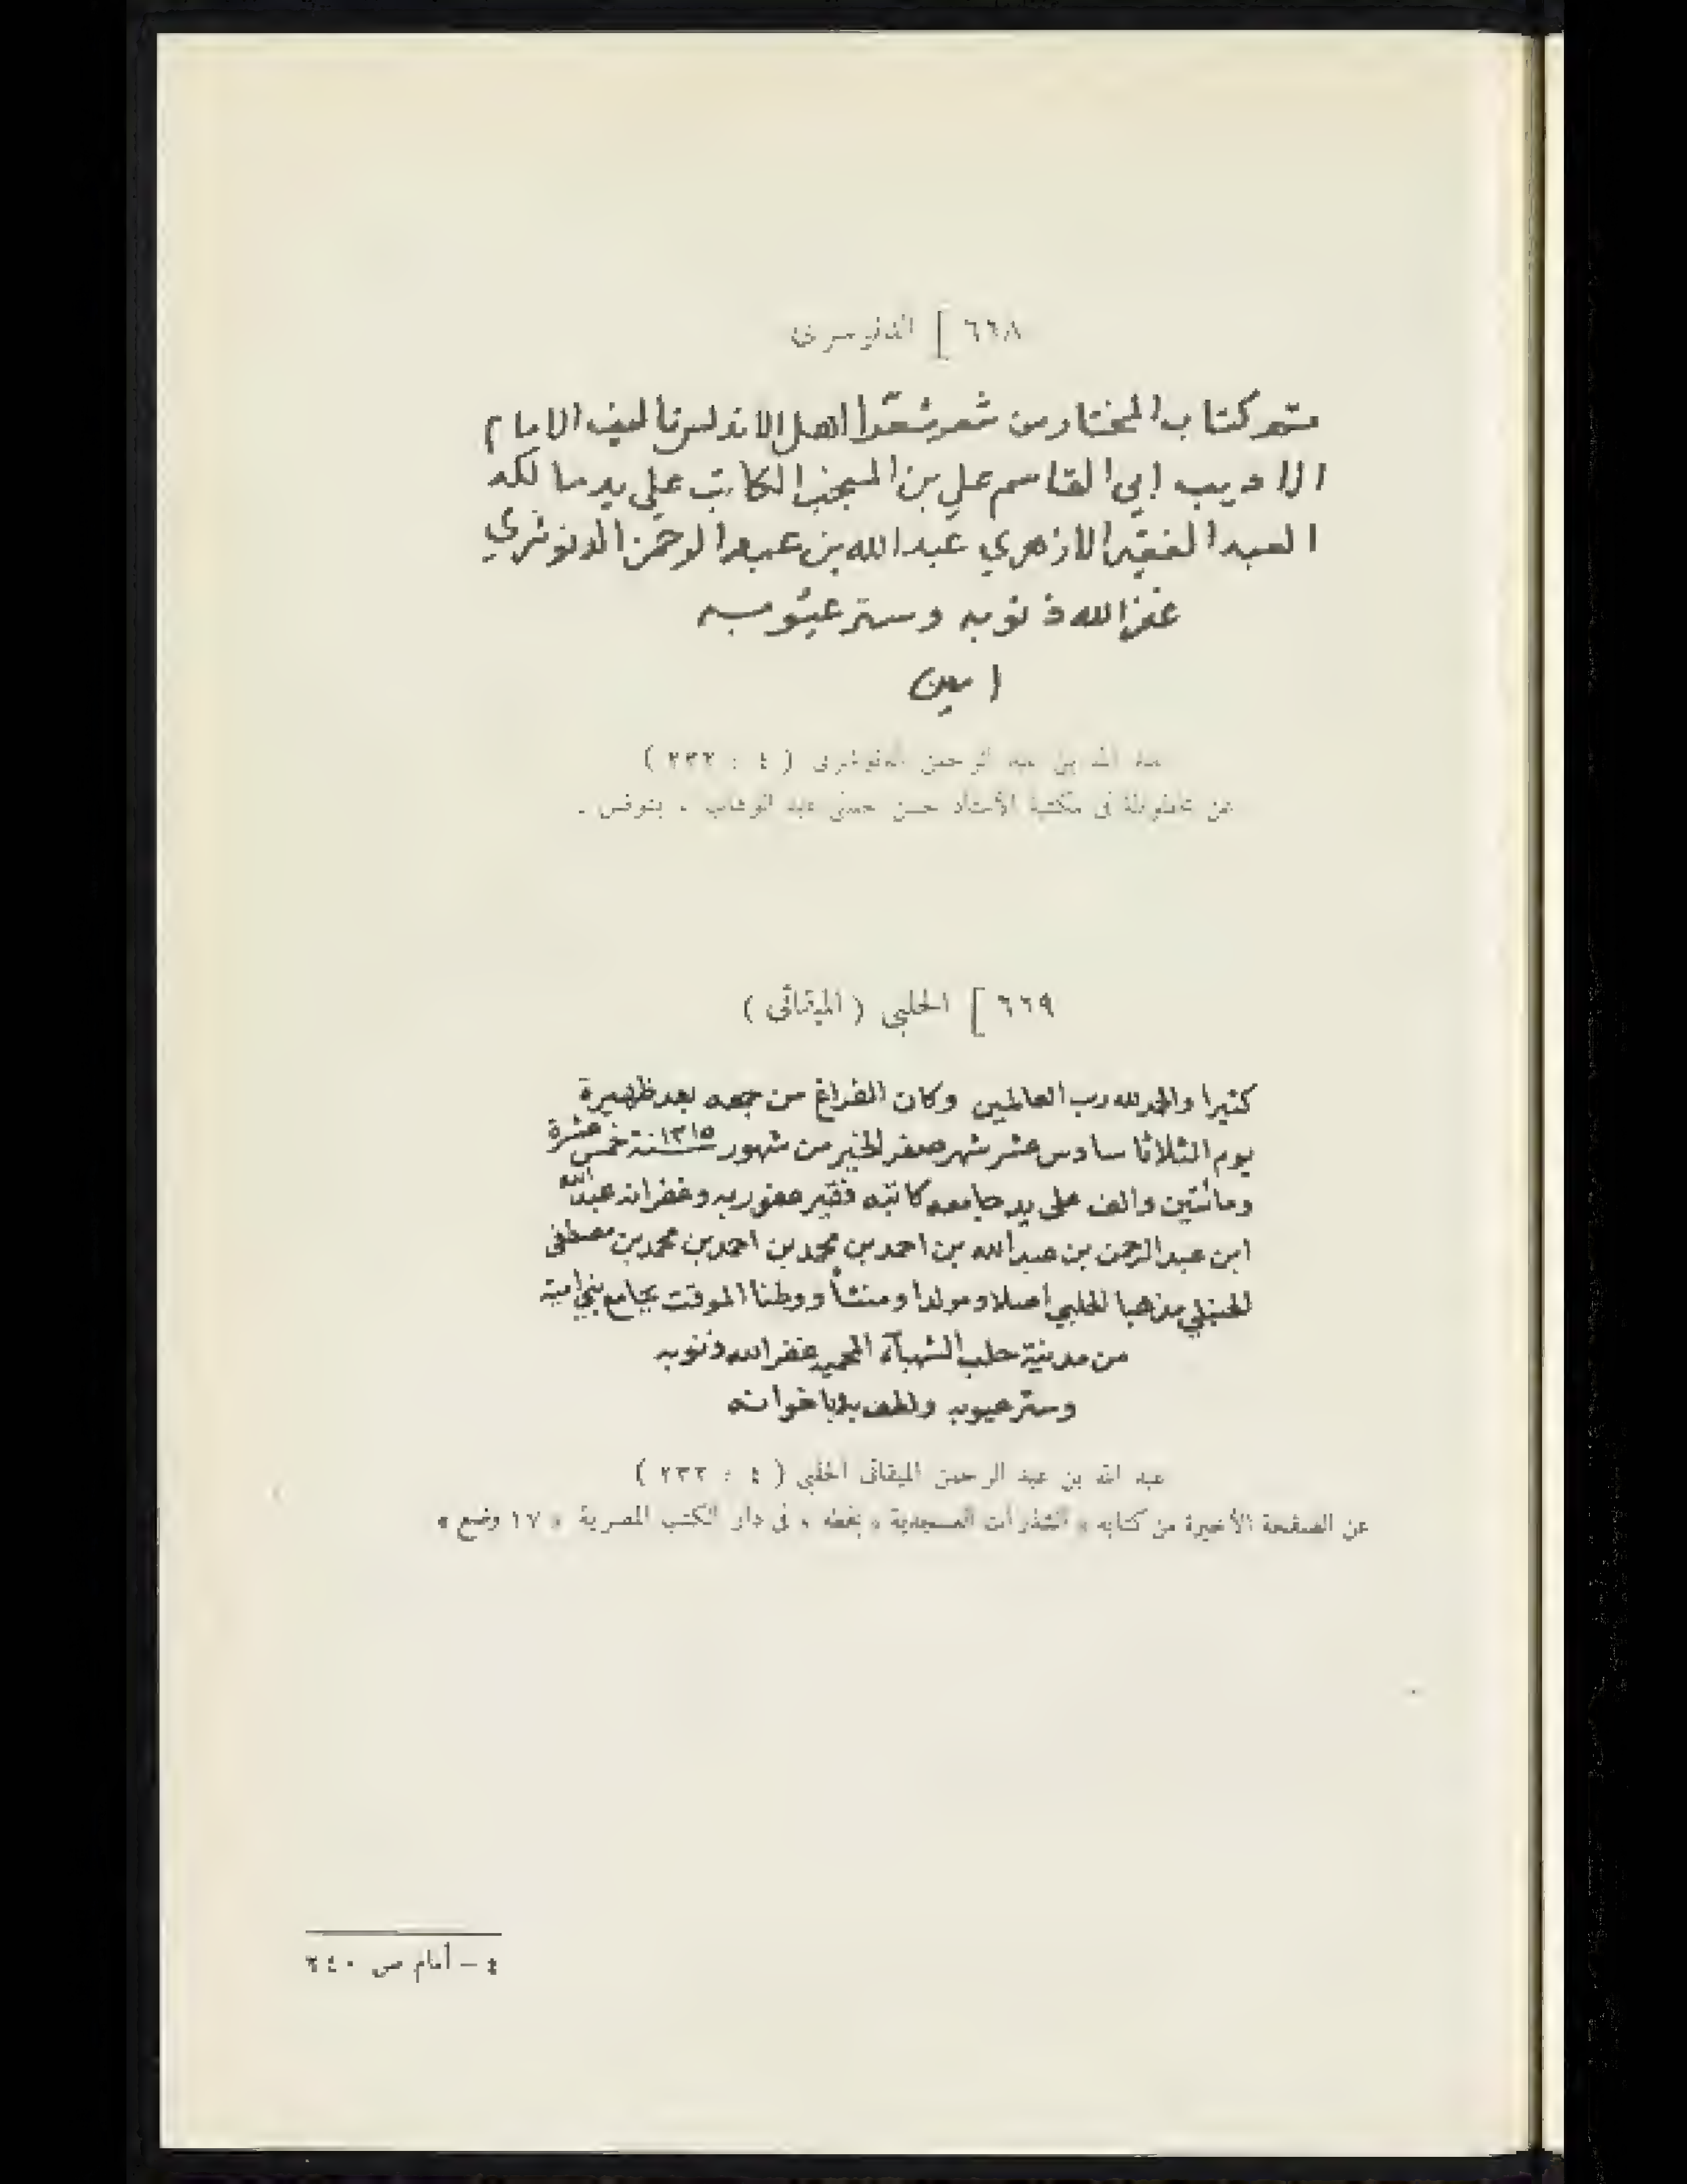 ٦٦٨ ] الدنوشرى
تم كتاب المختار من شعر شعرا اهل الاندلس تاليف الامام
الاديب ابي القاسم علي بن المنجب الكاتب علي يد مالكه
العبد الفقير الازهري عبد الله بن عبد الرحمن الدنوشري
غفر الله ذنوبه وستر عيوبه
امين
عبد الله بن عبد الرحمن الدنوشرى ( ٤ : ٢٣٢ )
عن مخطوطة فى مكتبة الأستاذ حسن حسنى عبد الوهاب ، بتونس .
٦٦٩ ] الحلبي ( الميقاتى )
كثيرا والحمد لله رب العالمين وكان الفراغ من جمعه بعد ظهيرة
يوم الثلاثا سادس عشر شهر صفر الخير من شهور سنة ١٢١٥ خمس عشرة
ومائتين والف على يد جامعه كاتبه فقير عفو ربه وغفرانه عبد الله
ابن عبد الرحمن بن عبد الله بن احمد بن محمد بن احمد بن محمد بن مصطفى
الحنبلي مذهبا الحلبي اصلا ومولدا ومنشأ ووطنا الموقت بجامع بني امية
من مدينة حلب الشهباء المحميه غفر الله ذنوبه
وستر عيوبه ولطف به وباخوانه
عبد الله بن عبد الرحمن الميقاتى الحلبي ( ٤ : ٢٣٢ )
عن الصفحة الأخيرة من كتابه « الشذرات العسجدية » بخطه ، فى دار الكتب المصرية « ١٧ وضع »
٤ – أمام ص ٢٤٠